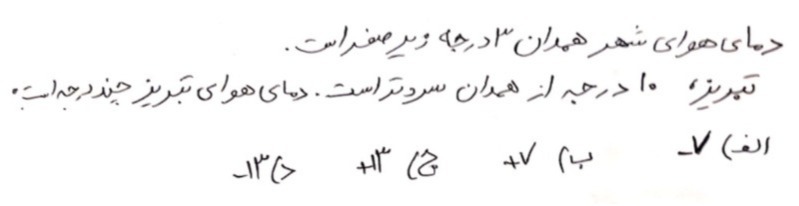 دمای هوای شهر همدان ۳ درجه زیر صفر است.
تبریز، ۱۰ درجه از همدان سردتر است. دمای هوای تبریز چند درجه است؟
الف) -۷ ب) +۷ ج) +۱۳ د) -۱۳